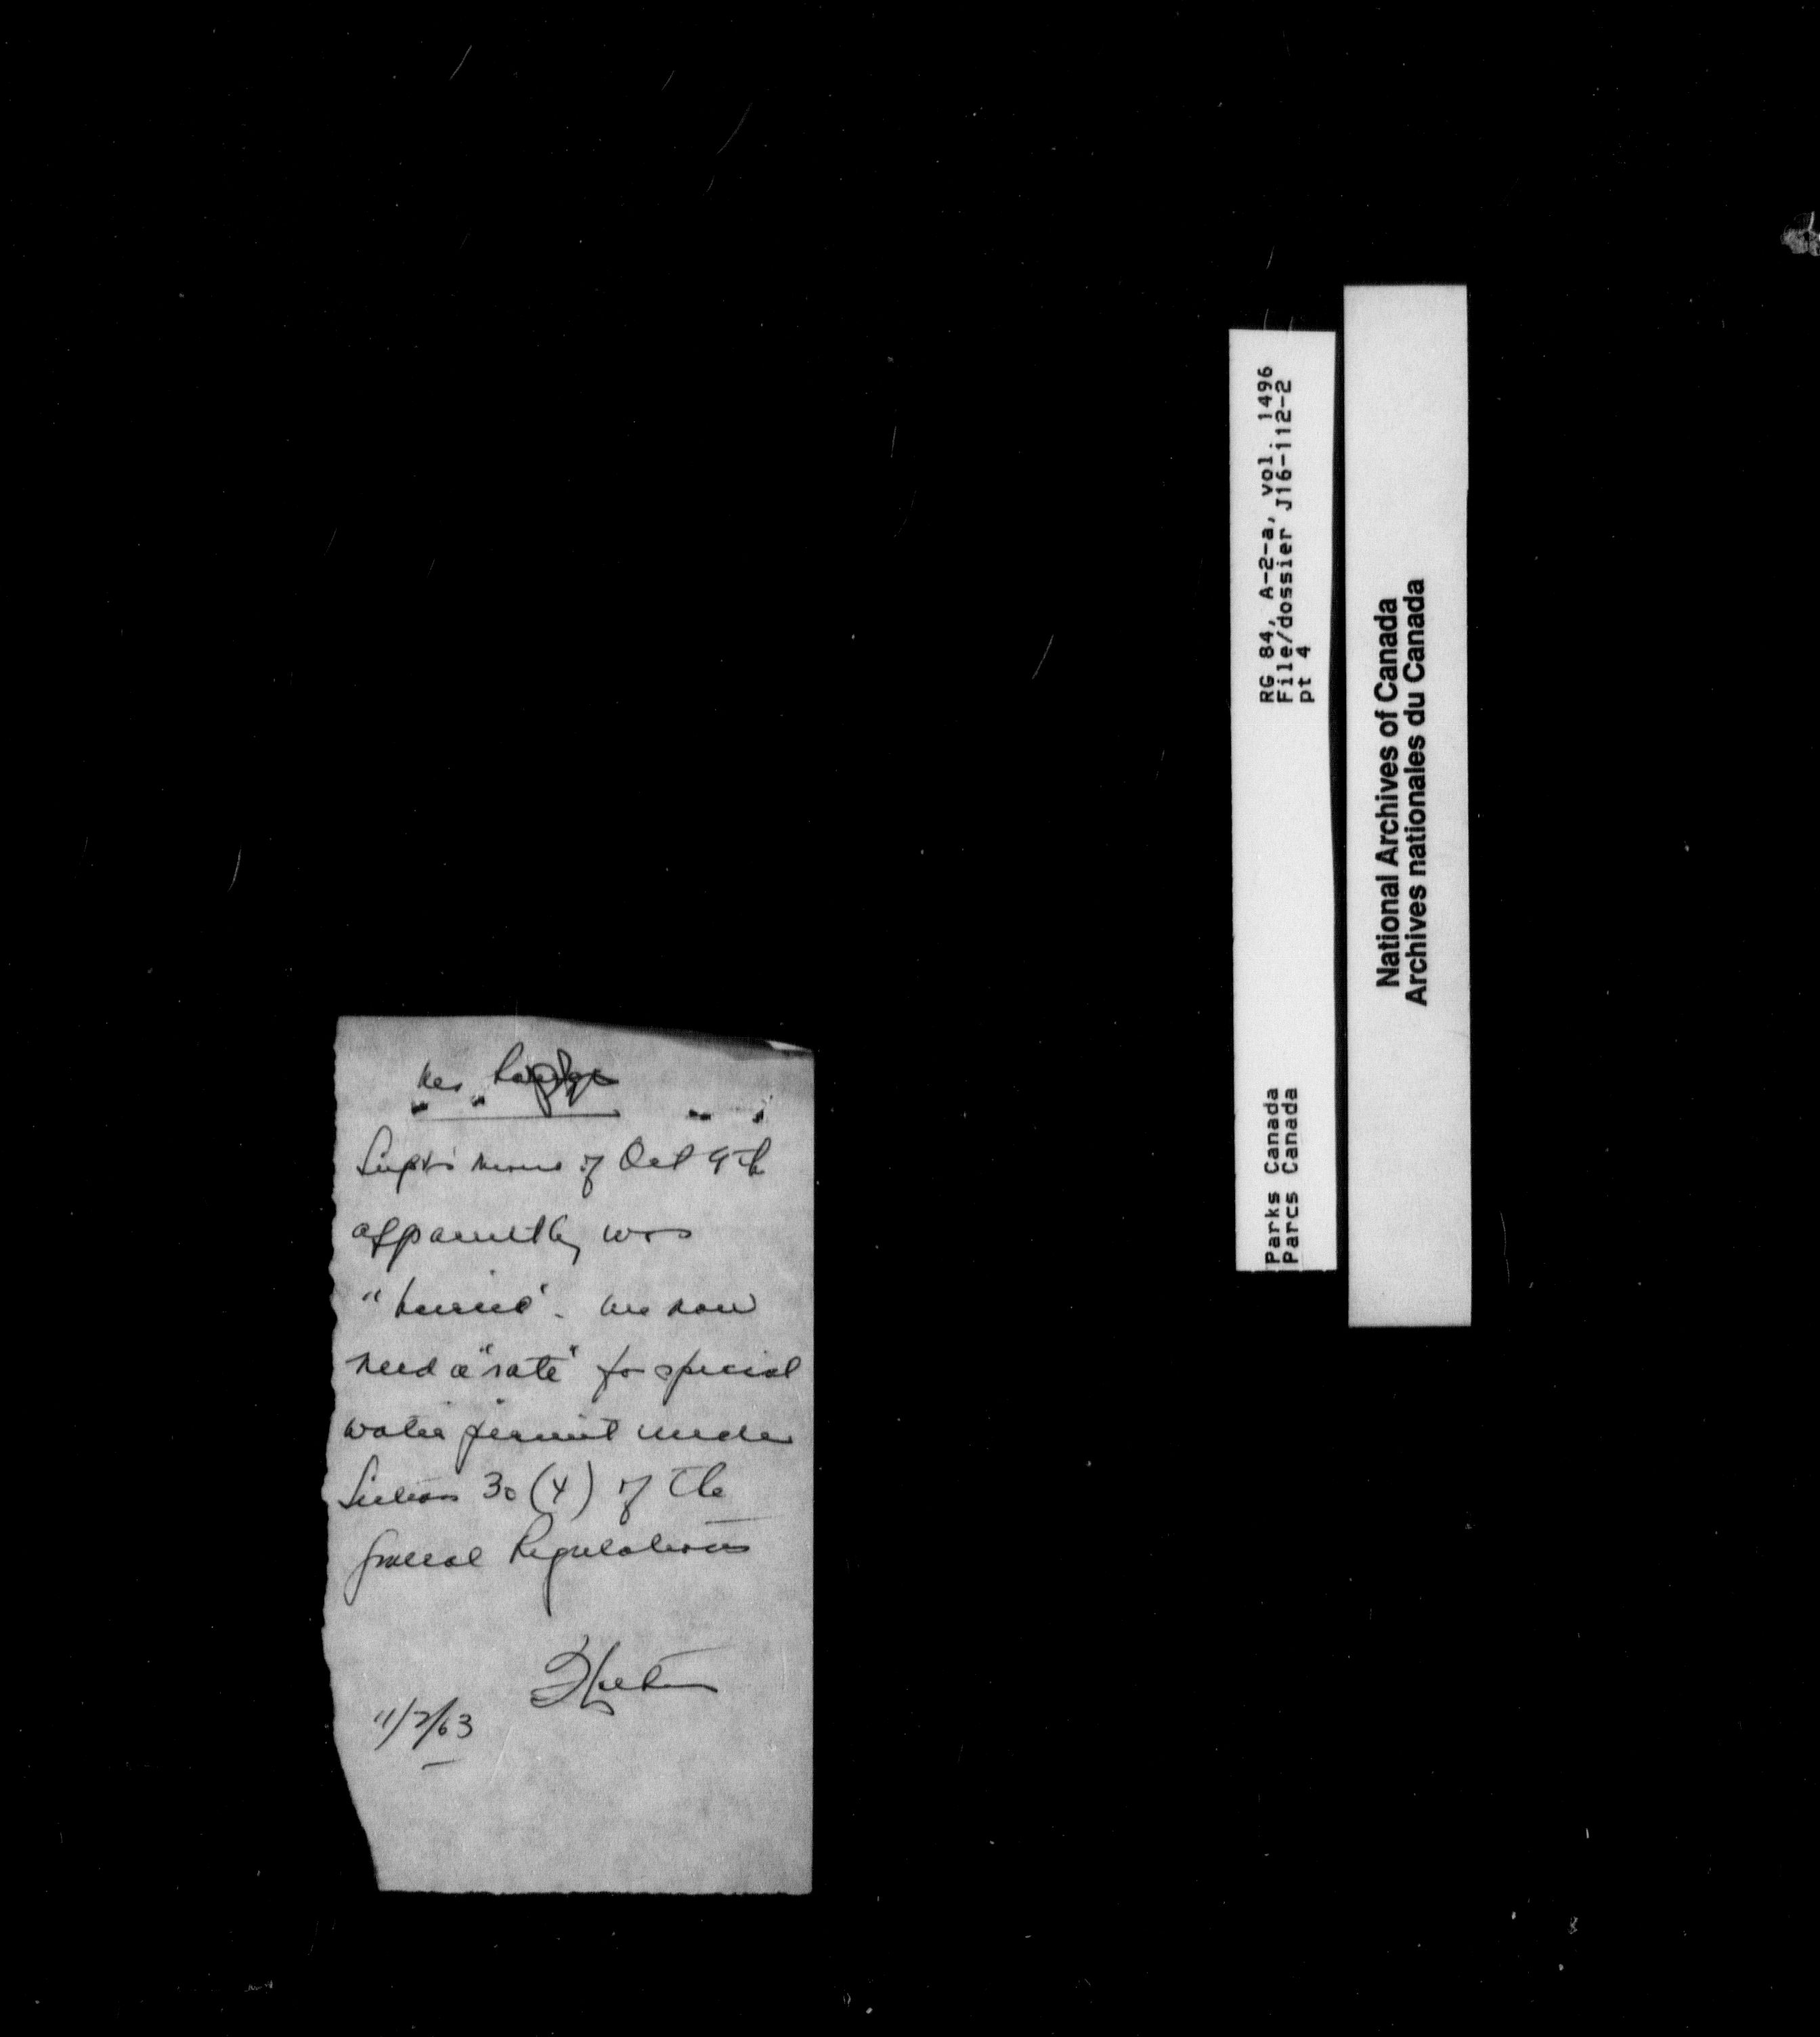 Supt's memo of Oct 9th
apparently was
" ". We now
need a "rate" for special
water permit under
Section 30 (4) of the
General Regulations
11/2/63
RG 84, A-2-a, vol. 1496
File/dossier J16-112-2
pt 4
Parks Canada
Parcs Canada
National Archives of Canada
Archives nationales du Canada